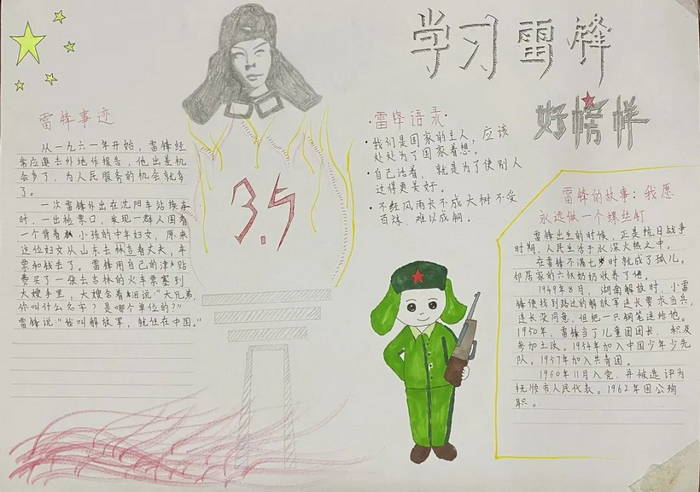 学习雷锋
好榜样
雷锋事迹
从一九六一年开始，雷锋经
常应邀去外地作报告，他出差机
会多了，为人民服务的机会就多
了。
一次雷锋外出在沈阳车站换车
时，一出检票口，发现一群人围着
一个背着小孩的中年妇女，原来
这位妇女从山东去吉林看丈夫，车
票和钱丢了。雷锋用自己的津贴
费买了一张去吉林的火车票塞到
大嫂手里，大嫂含着泪说"大兄弟，
你叫什么名字？是哪个单位的?"
雷锋说"我叫解放军，就住在中国。"
3.5
雷锋语录:
·我们是国家的主人，应该
处处为了国家着想。
·自己活着，就是为了使别人
过得更美好。
·不经风雨长不成大树不受
百炼，难以成钢。
雷锋的故事：我愿
永远做一个螺丝钉
雷锋出生的时候，正是抗日战争
时期，人民生活于水深火热之中，
在雷锋不满七岁时就成了孤儿。
邻居家的六叔奶奶收养了他。
1949年8月，湖南解放时，小雷
锋便找到路过的解放军连长要求当兵，
连长没同意，但把一只钢笔送给他。
1950年，雷锋当了儿童团团长，积极
参加土改。1954年加入中国少年少先
队，1957年加入共青团。
1960年11月入党，并被选评为
抚顺市人民代表。1962年因公殉
职。